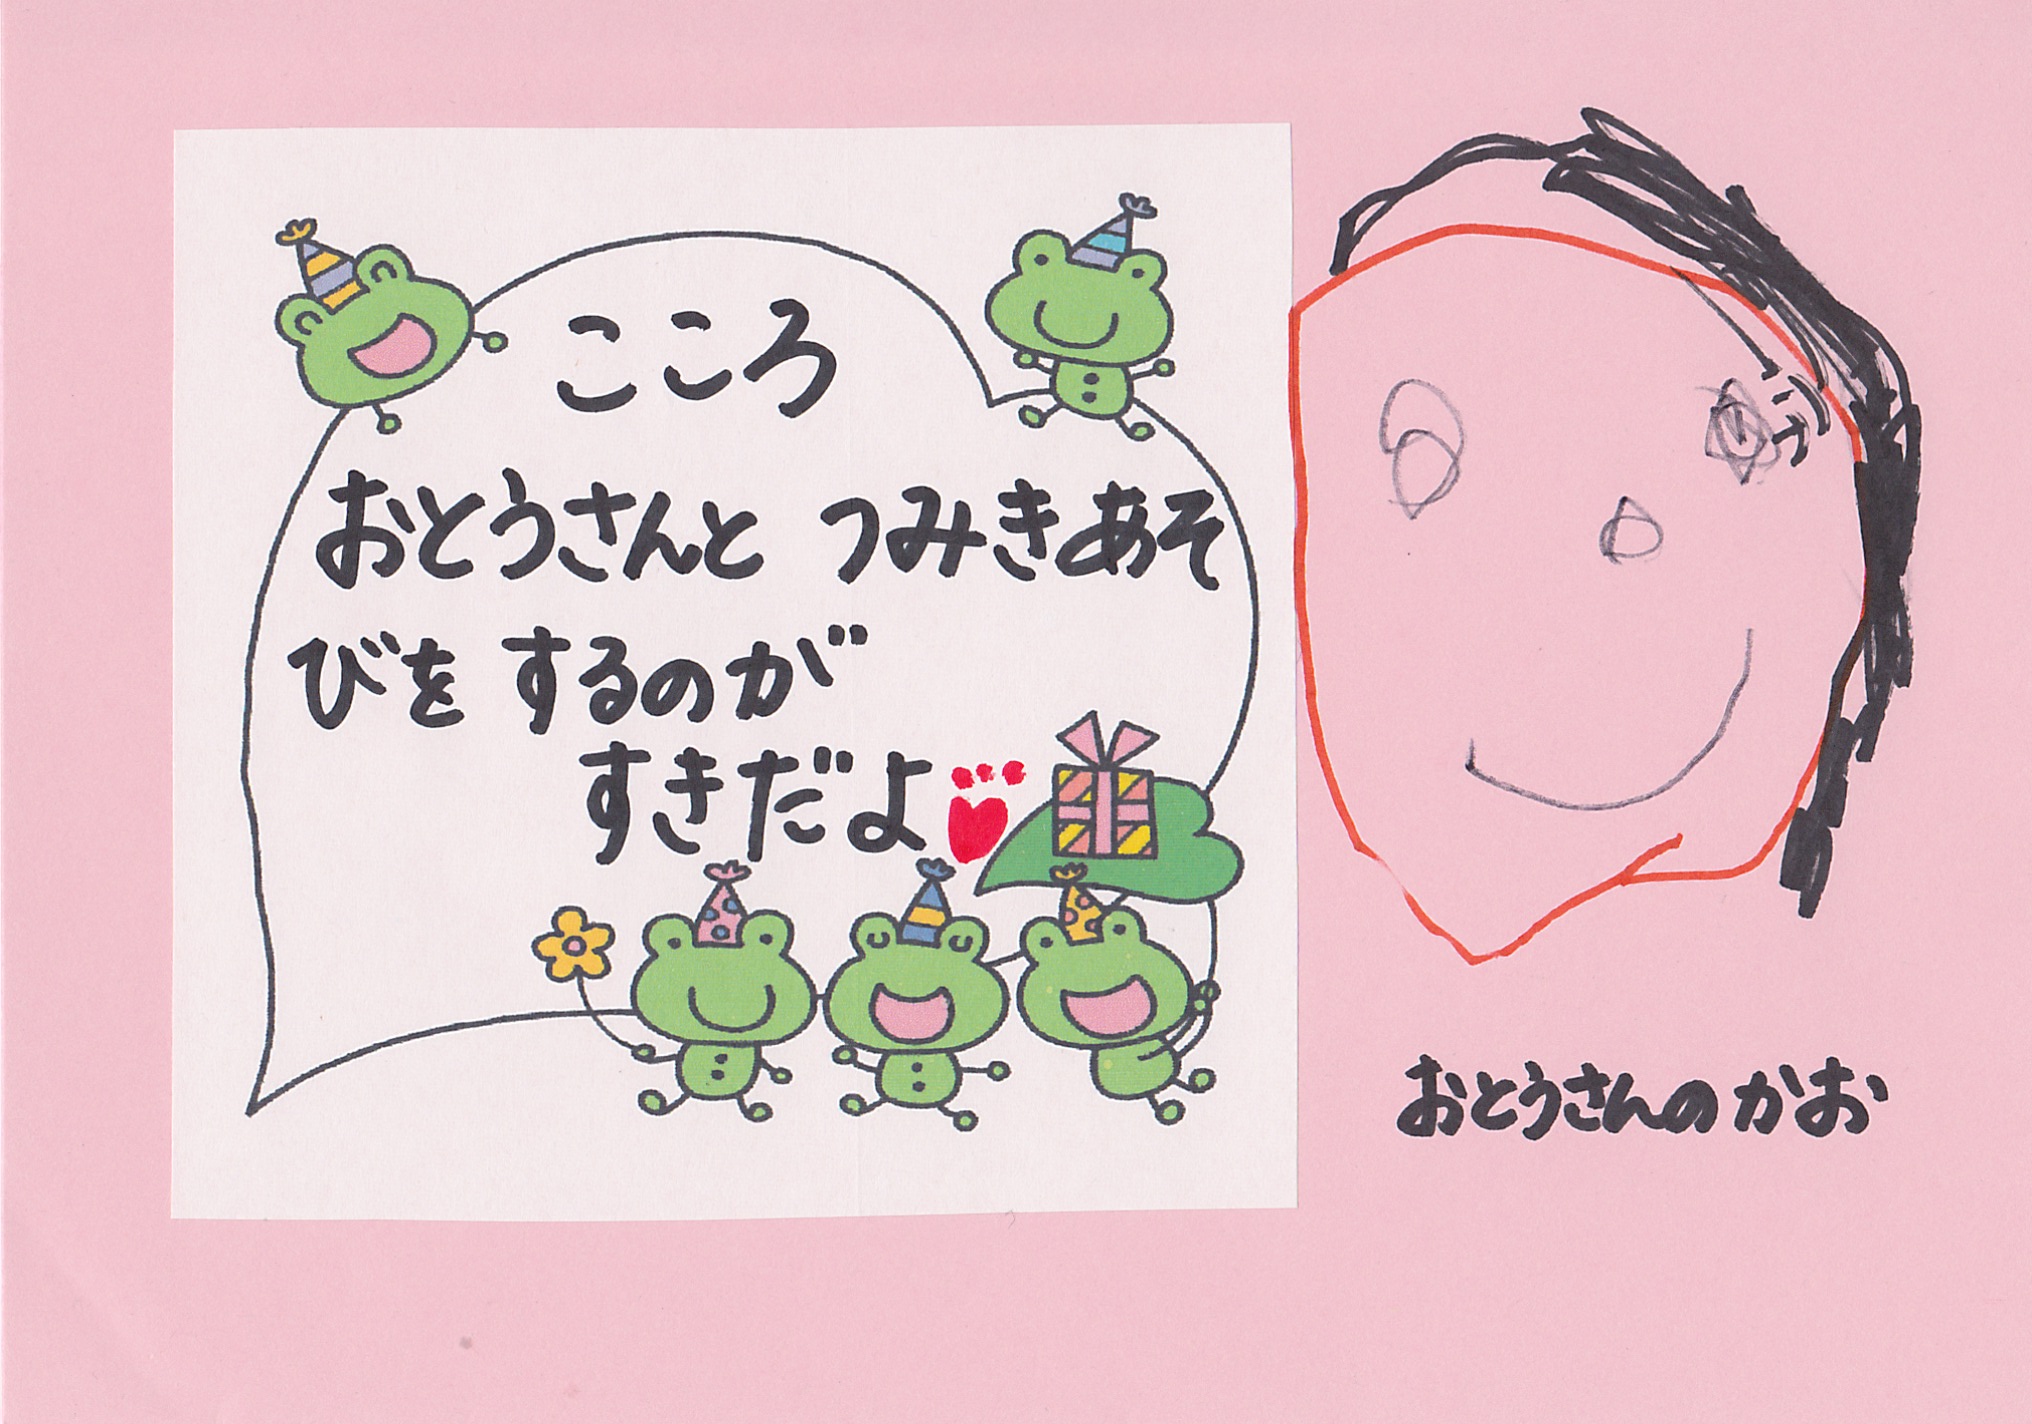 こころ
おとうさんと つみきあそ
びを するのが
すきだよ
おとうさんの かお